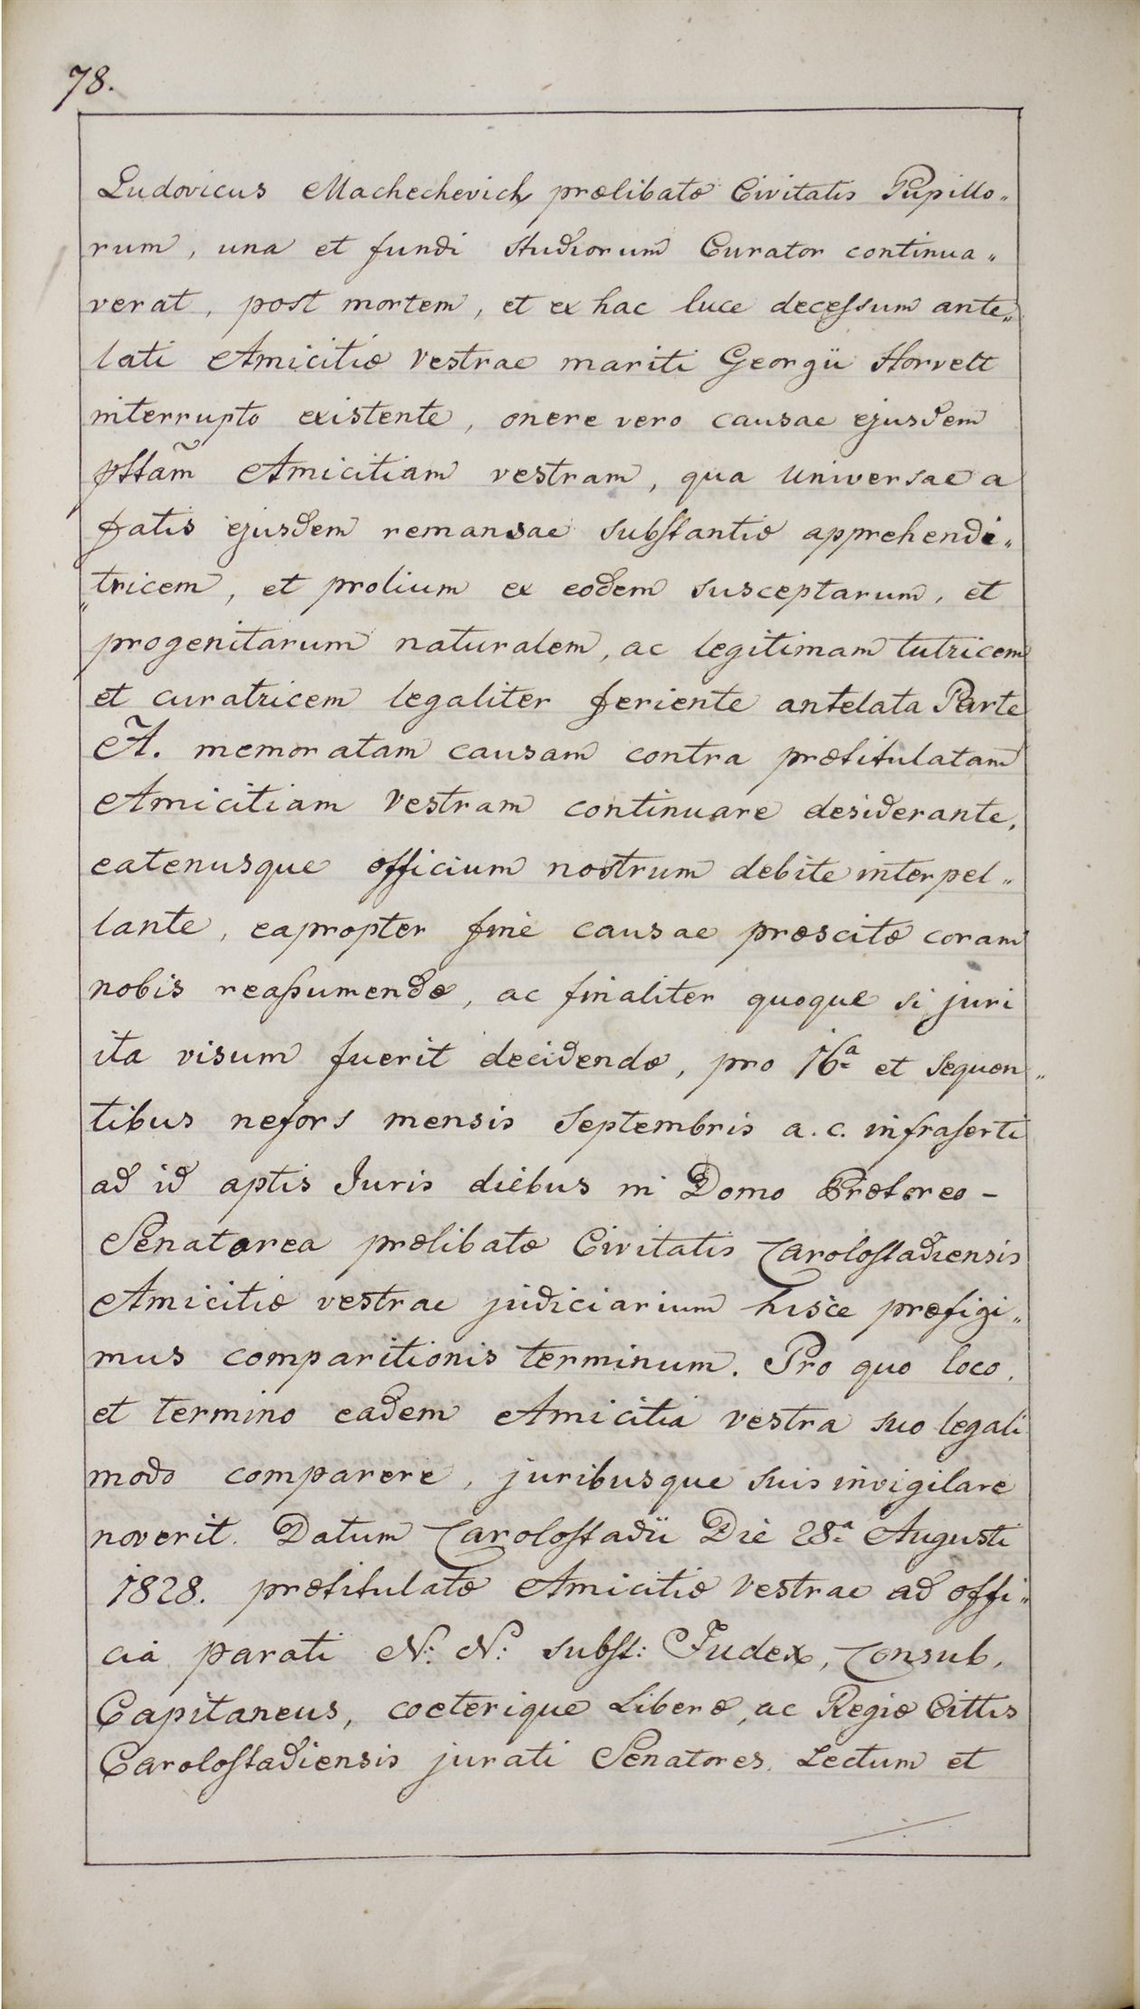 78.
Ludovicus Machechevich prælibatæ Civitatis Pupillo„
rum, una et fundi studiorum Curator continua„
verat, post mortem, et ex hac luce decessum ante„
lati Amicitiæ vestrae mariti Georgii Horvett
interrupto existente, onere vero causae ejusdem
pttam̃ Amicitiam vestram, qua universae a
fatis ejusdem remansae substantiæ apprehendi„
„tricem, et prolium ex eodem susceptarum, et
progenitarum naturalem, ac legitimam tutricem
et curatricem legaliter feriente antelata Parte
A. memoratam causam contra prætitulatam
Amicitiam vestram continuare desiderante,
eatenusque officium nostrum debite interpel„
lante, eapropter fine causae præscitæ coram
nobis reassumendæ, ac finaliter quoque si juri
ita visum fuerit decidendæ, pro 16ª et sequen„
tibus nefors mensis Septembris a.c. infraserti
ad id aptis Juris diebus in Domo Prætoreo-
Senatorea prælibatæ Civitatis Carolostadiensis
Amicitiæ vestrae judiciarium hisce præfigi„
mus comparitionis terminum. Pro quo loco,
et termino eadem Amicitia vestra suo legali
modo comparere, juribusque suis invigilare
noverit. Datum Carolostadii Die 28ª Augusti
1828. prætitulatæ Amicitiæ vestrae ad offi„
cia parati N: N: subst: Judex, Consub,
Capitaneus, coeterique Liberæ, ac Regiæ Cittis
Carolostadiensis jurati Senatores. Lectum et